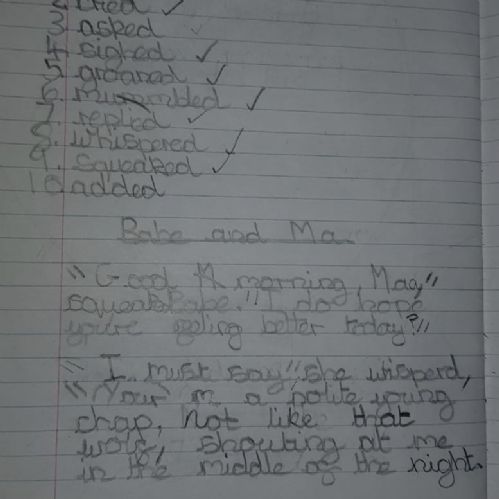 2. cried
3. asked
4. sighed
5. groaned
6. mummbled
7. replied
8. whispered
9. squeaked
10. added
Babe and Ma
"Good morning, Mag,"
squeaks Babe. "I do hope
you're feeling better today?"
"I must say" she wisperd,
"Your a polite young
chap, not like that
wolf, shouting at me
in the middle of the night.